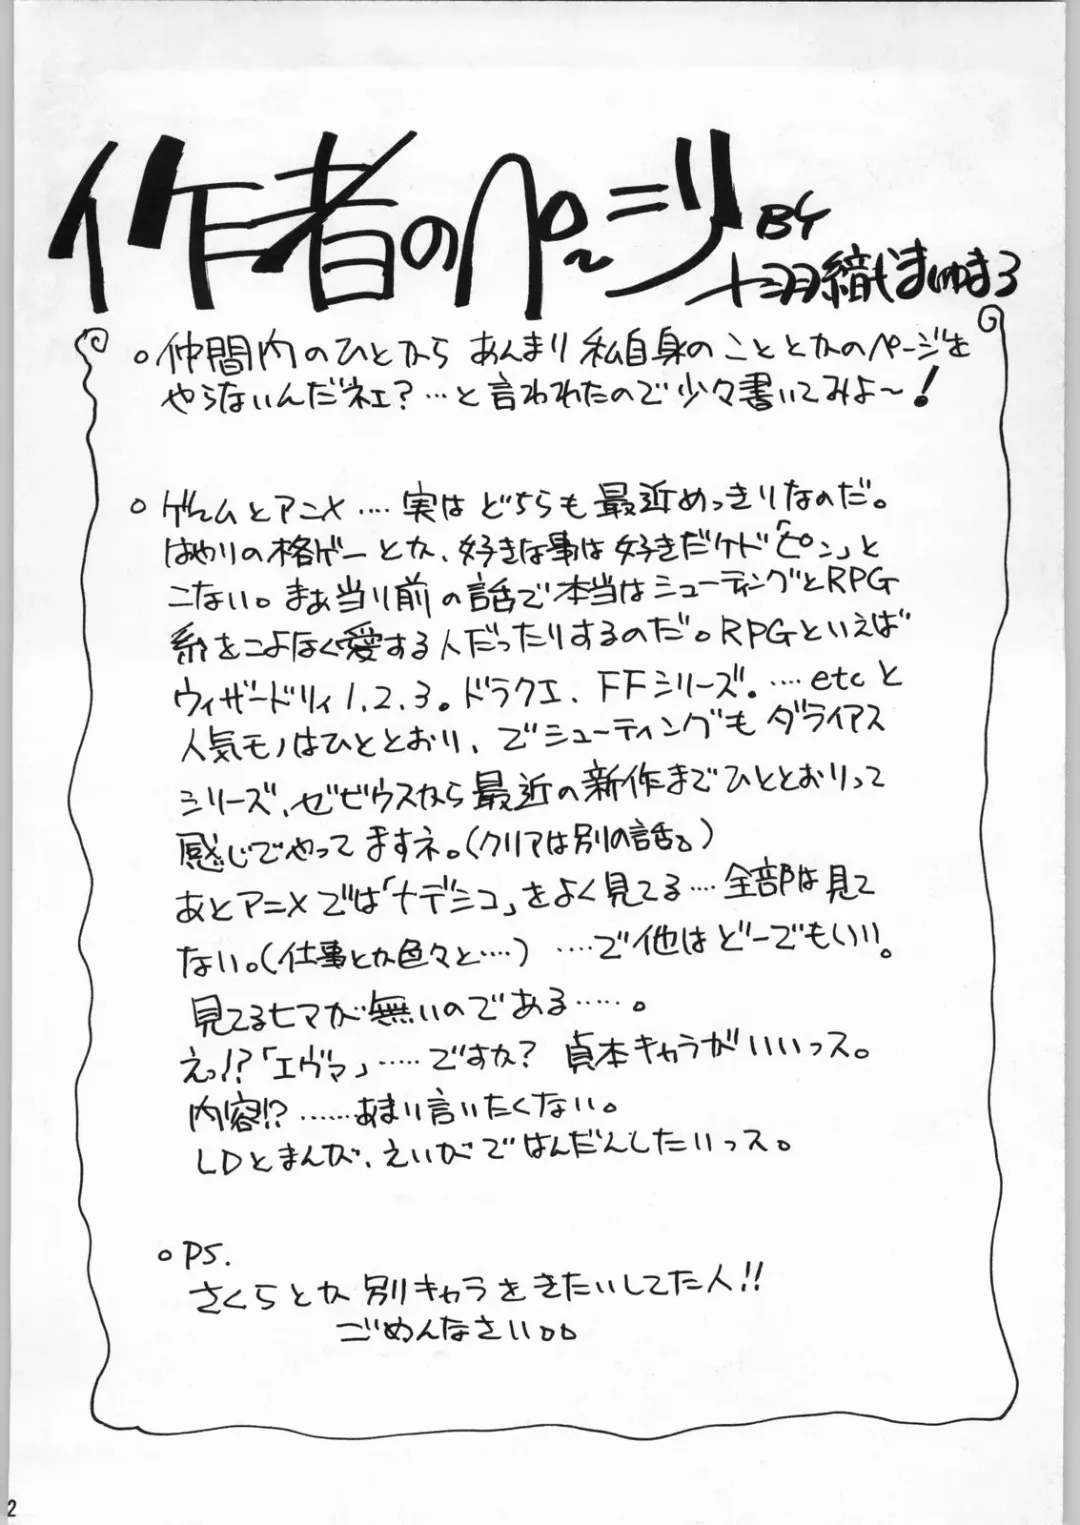 作者のペ〜ジ
BY
十羽織ましゅまろ
○仲間内のひとから あんまり私自身のこととかのページを
やらないんだネェ？…と言われたので少々書いてみよ〜！
○ゲームとアニメ‥‥実はどちらも最近めっきりなのだ。
はやりの格ゲーとか、好きな事は好きだケド「ピン」と
こない。まぁ当り前の話で本当はシューティングとRPG
系をこよなく愛する人だったりするのだ。RPGといえば
ウィザードリィ1.2.3。ドラクエ、FFシリーズ。‥‥etcと
人気モノはひととおり、でシューティングもダライアス
シリーズ、ゼビウスから最近の新作までひととおりって
感じでやってますネ。(クリアは別の話。)
あとアニメでは「ナデシコ」をよく見てる‥‥全部は見て
ない。(仕事とか色々と‥‥) ‥‥で他はどーでもいい。
見てるヒマが無いのである‥‥‥。
えっ!?「エヴァ」‥‥‥ですか？ 貞本キャラがいいっス。
内容!?‥‥‥あまり言いたくない。
LDとまんが、えいがではんだんしたいっス。
○PS.
さくらとか別キャラをきたいしてた人!!
ごめんなさい。。
2